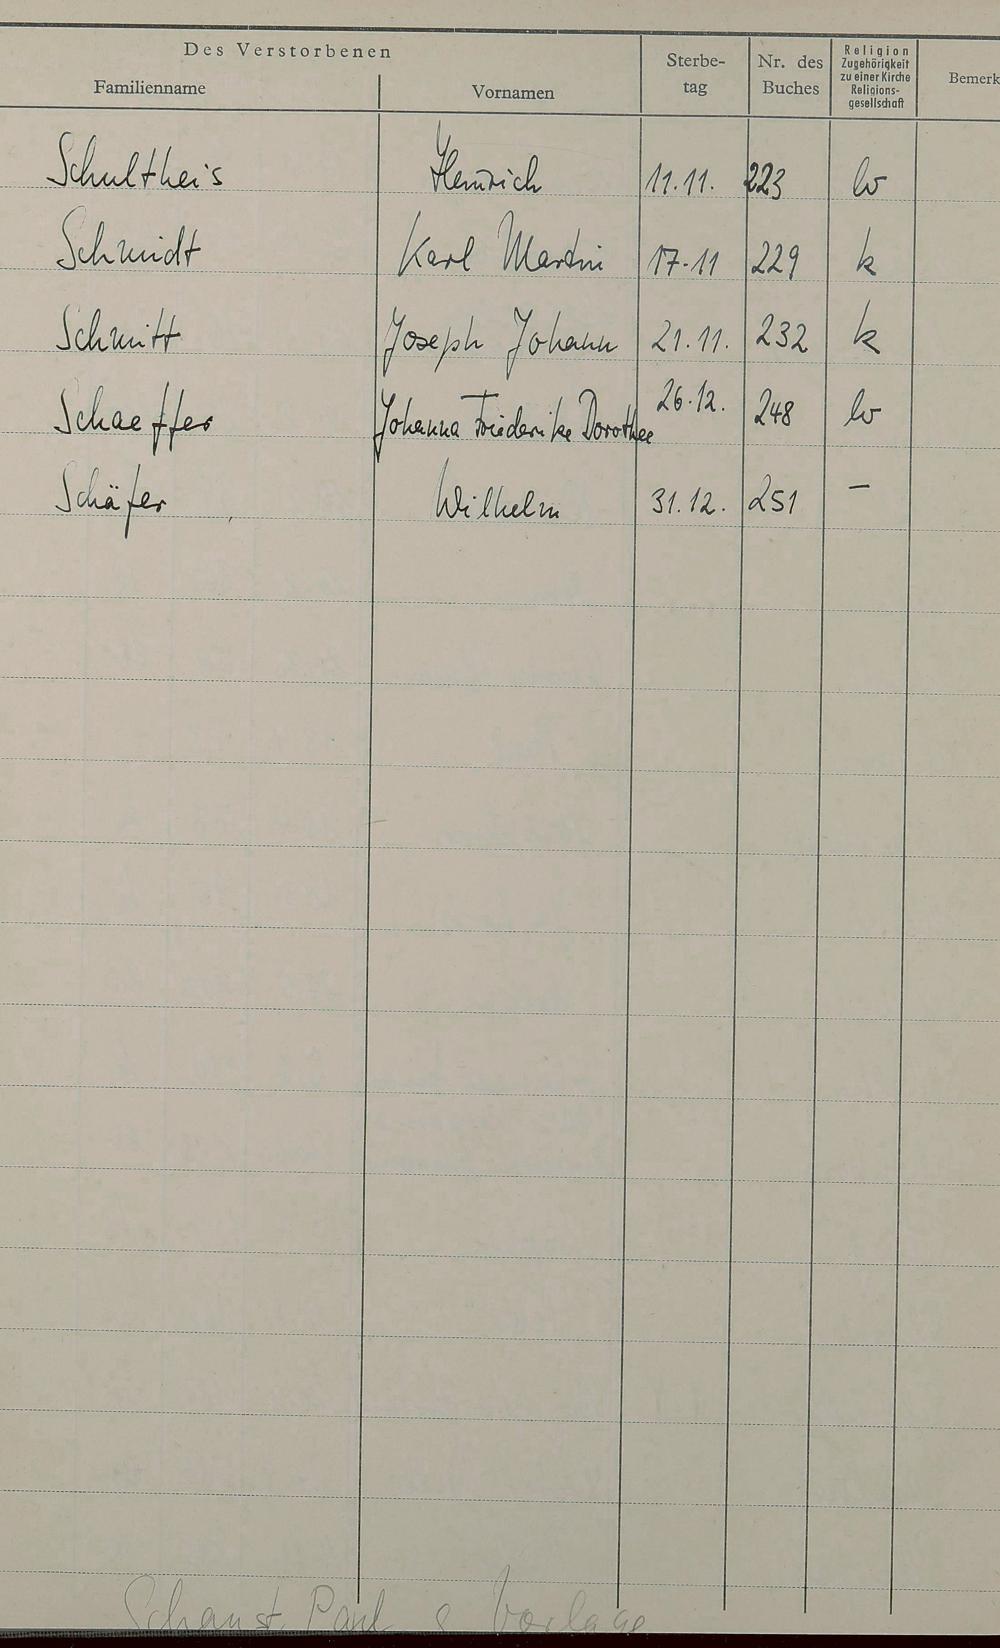 Des Verstorbenen
Familienname Vornamen Sterbe-tag Nr. des Buches Religion Zugehörigkeit zu einer Kirche Religions-gesellschaft Bemerk
Schultheis Heinrich 11.11. 223 lv
Schmidt Karl Martin 17.11 229 k
Schmitt Joseph Johann 21.11. 232 k
Schaeffer Johanna Friederike Dorothee 26.12. 248 lv
Schäfer Wilhelm 31.12. 251 –
Schanst, Paul s Vorlage